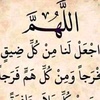 اللَّهُمَّ
اجْعَلْ لَنَا مِنْ كُلِّ ضِيقٍ
فَرَجًا وَمِنْ كُلِّ هَمٍّ فَرَجًا